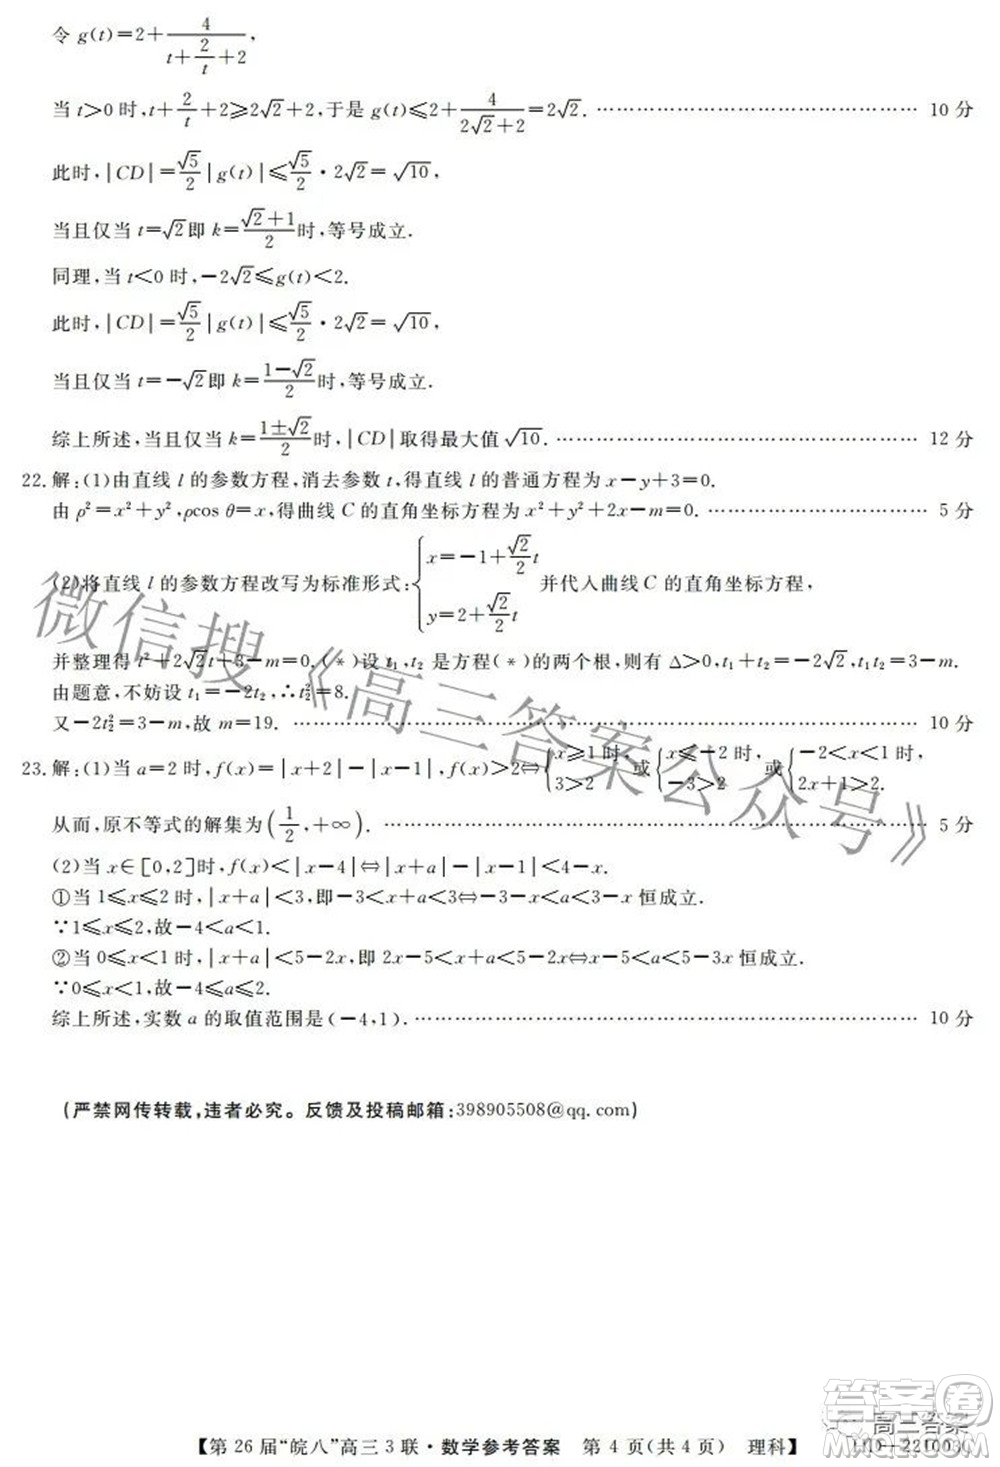 令 g(t)=2+4/(t+2/t+2),
当 t>0 时,t+2/t+2≥2√2+2,于是 g(t)≤2+4/(2√2+2)=2√2. ………………………………………… 10 分
此时,|CD|=√5/2|g(t)|≤√5/2·2√2=√10,
当且仅当 t=√2即 k=(√2+1)/2时,等号成立.
同理,当 t<0 时,-2√2≤g(t)<2.
此时,|CD|=√5/2|g(t)|≤√5/2·2√2=√10,
当且仅当 t=-√2即 k=(1-√2)/2时,等号成立.
综上所述,当且仅当 k=(1±√2)/2时,|CD|取得最大值√10. ………………………………………… 12 分
22.解:(1)由直线 l 的参数方程,消去参数 t,得直线 l 的普通方程为 x-y+3=0.
由 ρ²=x²+y²,ρcos θ=x,得曲线 C 的直角坐标方程为 x²+y²+2x-m=0. …………………………… 5 分
(2)将直线 l 的参数方程改写为标准形式:{x=-1+√2/2t y=2+√2/2t 并代入曲线 C 的直角坐标方程,
并整理得 t²+2√2t+3-m=0.(*)设 t₁,t₂ 是方程(*)的两个根,则有 Δ>0,t₁+t₂=-2√2,t₁t₂=3-m.
由题意,不妨设 t₁=-2t₂,∴t₂²=8.
又-2t₂²=3-m,故 m=19. ………………………………………………………………… 10 分
23.解:(1)当 a=2 时,f(x)=|x+2|-|x-1|,f(x)>2⇔{x≥1 时, 3>2 或{x≤-2 时, -3>2 或{-2<x<1 时, 2x+1>2.
从而,原不等式的解集为(1/2,+∞). ………………………………………………………… 5 分
(2)当 x∈[0,2]时,f(x)<|x-4|⇔|x+a|-|x-1|<|x-4|.
①当 1≤x≤2 时,|x+a|<3,即-3<x+a<3⇔-3-x<a<3-x 恒成立.
∵1≤x≤2,故-4<a<1.
②当 0≤x<1 时,|x+a|<5-2x,即 2x-5<x+a<5-2x⇔x-5<a<5-3x 恒成立.
∵0≤x<1,故-4≤a≤2.
综上所述,实数 a 的取值范围是(-4,1). ………………………………………………… 10 分
(严禁网传转载,违者必究。反馈及投稿邮箱:398905508@qq.com)
微信搜《高三答案公众号》
【第 26 届“皖八”高三 3 联·数学参考答案 第 4 页(共 4 页) 理科】
高三答案
答案圈